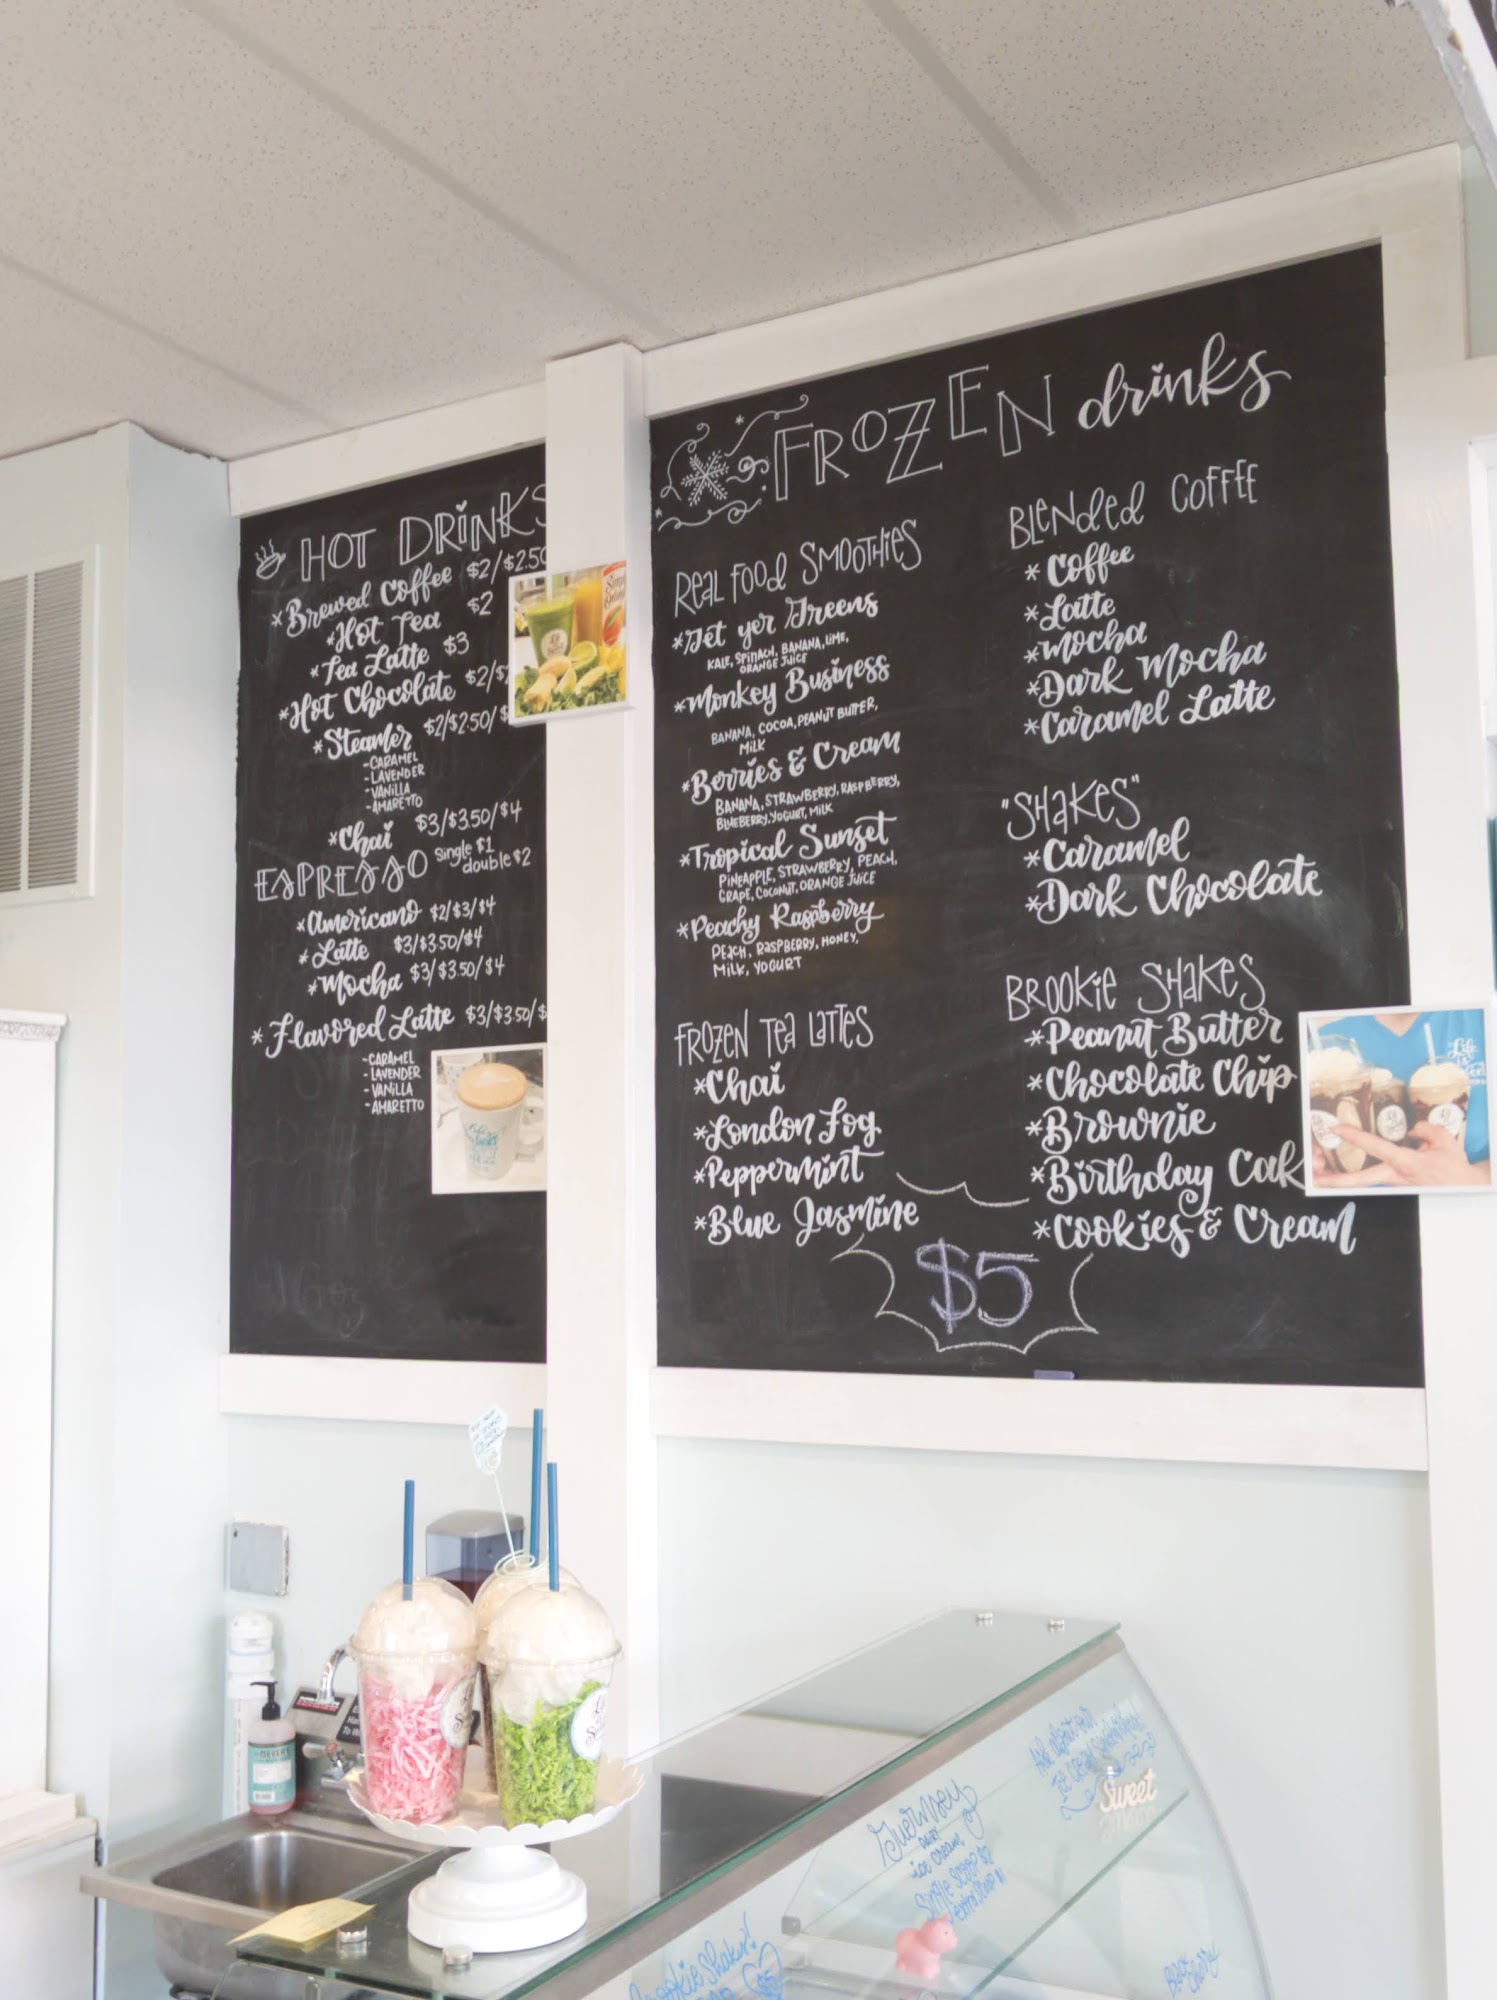 HOT DRINKS
*Brewed Coffee $2/$2.50
*Hot Tea $2
*Tea Latte $3
*Hot Chocolate $2/$
*Steamer $2/$2.50/$
-CARAMEL
-LAVENDER
-VANILLA
-AMARETTO
*Chai $3/$3.50/$4
ESPRESSO single $1
double $2
*Americano $2/$3/$4
*Latte $3/$3.50/$4
*Mocha $3/$3.50/$4
*Flavored Latte $3/$3.50/$
-CARAMEL
-LAVENDER
-VANILLA
-AMARETTO
FROZEN drinks
REAL FOOD SMOOTHIES
*Get yer Greens
KALE, SPINACH, BANANA, LIME,
ORANGE JUICE
*Monkey Business
BANANA, COCOA, PEANUT BUTTER,
MILK
*Berries & Cream
BANANA, STRAWBERRY, RASPBERRY,
BLUEBERRY, YOGURT, MILK
*Tropical Sunset
PINEAPPLE, STRAWBERRY, PEACH,
GRAPE, COCONUT, ORANGE JUICE
*Peachy Raspberry
PEACH, RASPBERRY, HONEY,
MILK, YOGURT
FROZEN TEA LATTES
*Chai
*London Fog
*Peppermint
*Blue Jasmine
BLENDED COFFEE
*Coffee
*Latte
*Mocha
*Dark Mocha
*Caramel Latte
"SHAKES"
*Caramel
*Dark Chocolate
BROOKIE SHAKES
*Peanut Butter
*Chocolate Chip
*Brownie
*Birthday Cak
*Cookies & Cream
$5
Life
is
Sweet
MEYER'S
Ask about our
ice cream sandwiches
Sweet
Guernsey
ice cream
Single scoop $2
extra scoop $1
Brookie Shakes!
$5
Black Cherry